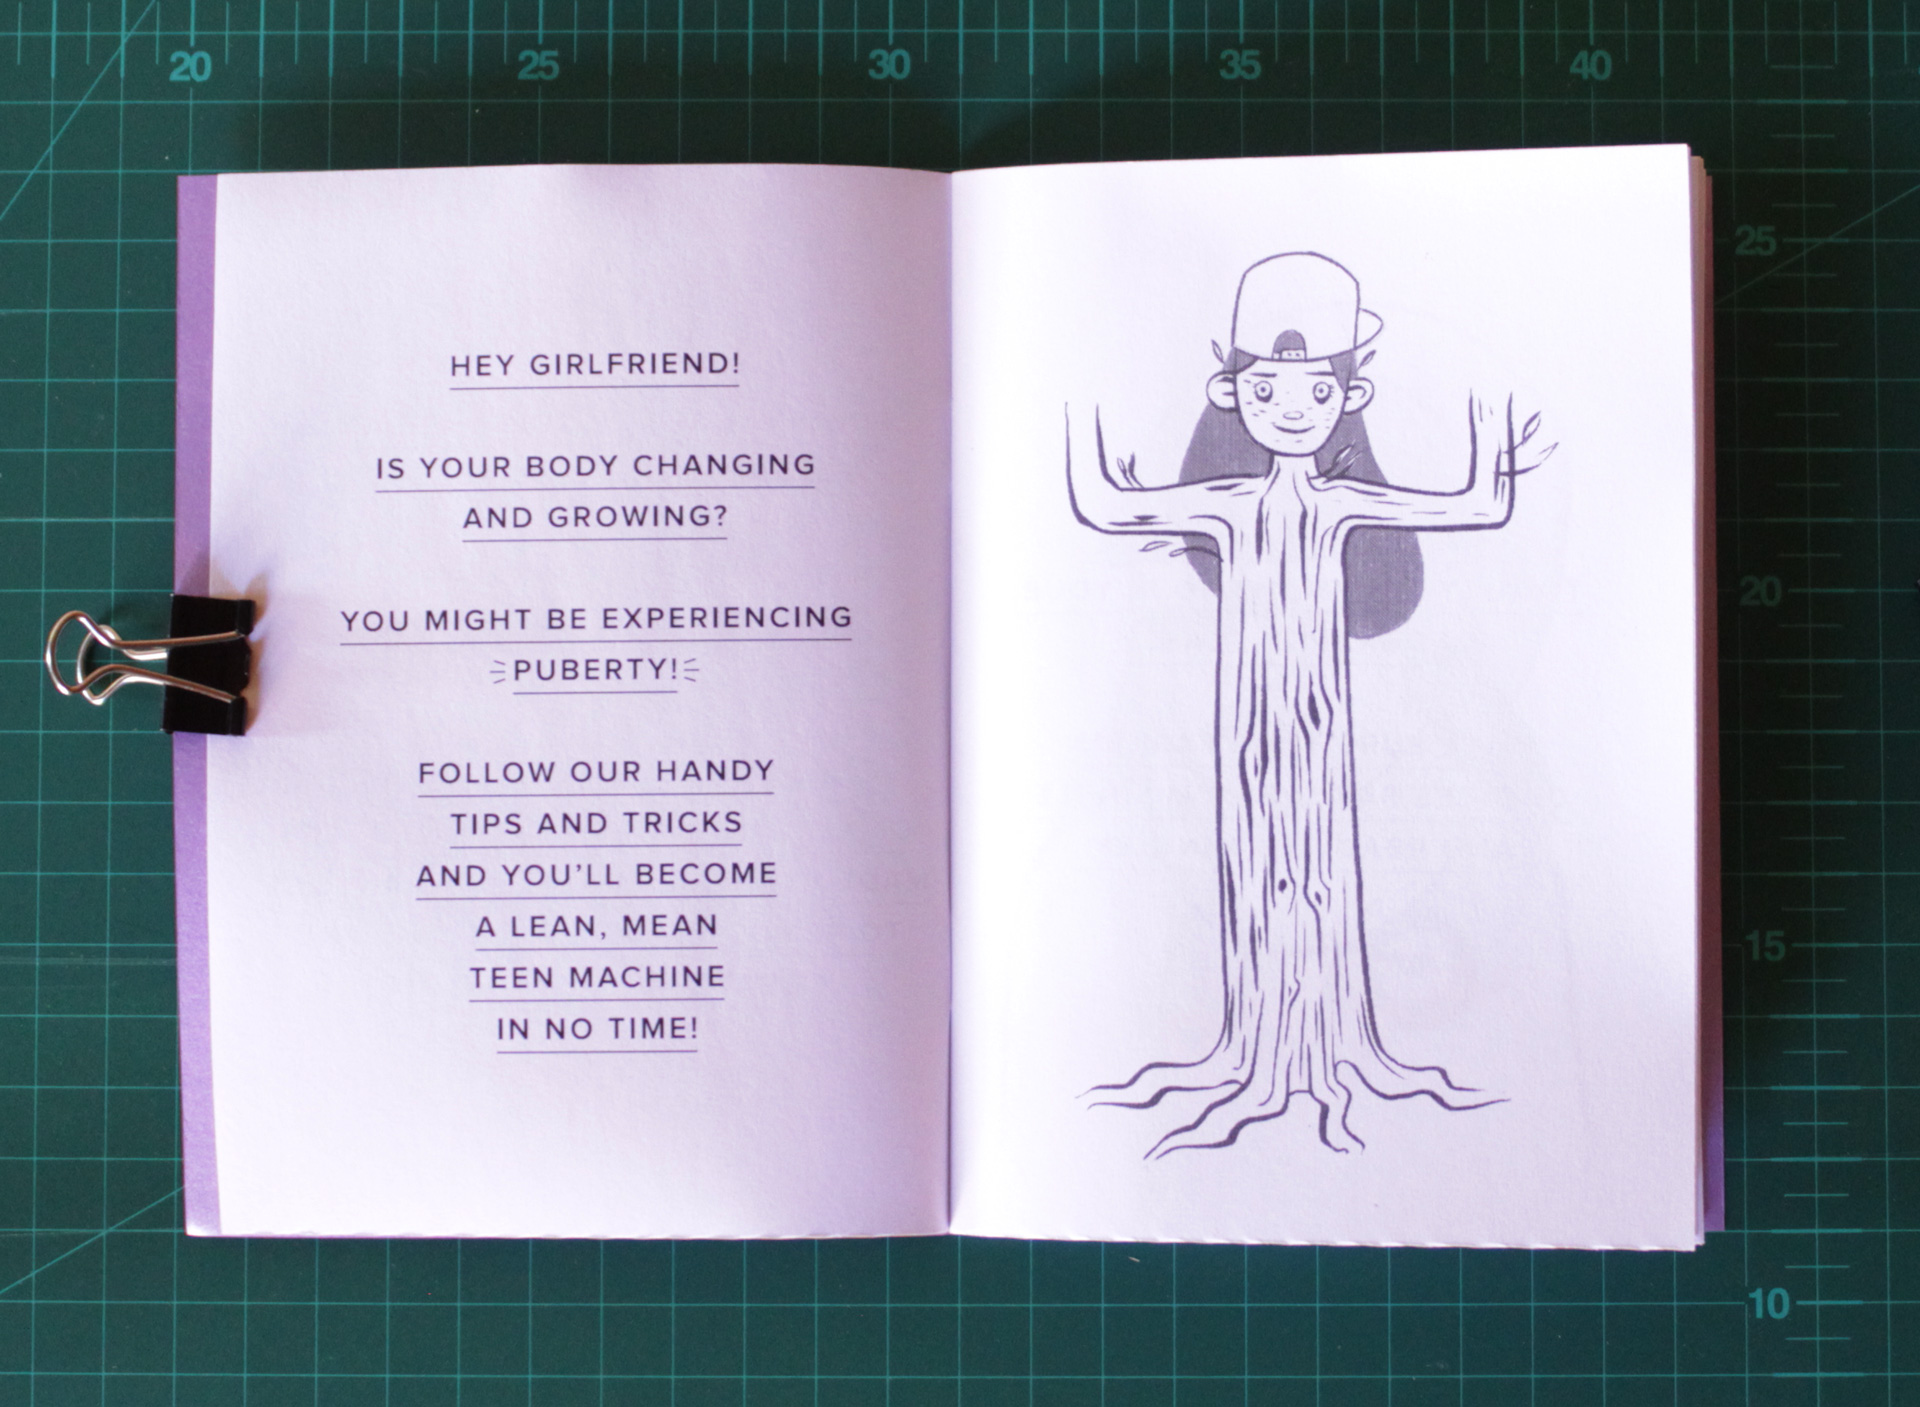 20 25 30 35 40
HEY GIRLFRIEND!
IS YOUR BODY CHANGING
AND GROWING?
YOU MIGHT BE EXPERIENCING
PUBERTY!
FOLLOW OUR HANDY
TIPS AND TRICKS
AND YOU'LL BECOME
A LEAN, MEAN
TEEN MACHINE
IN NO TIME!
25
20
15
10